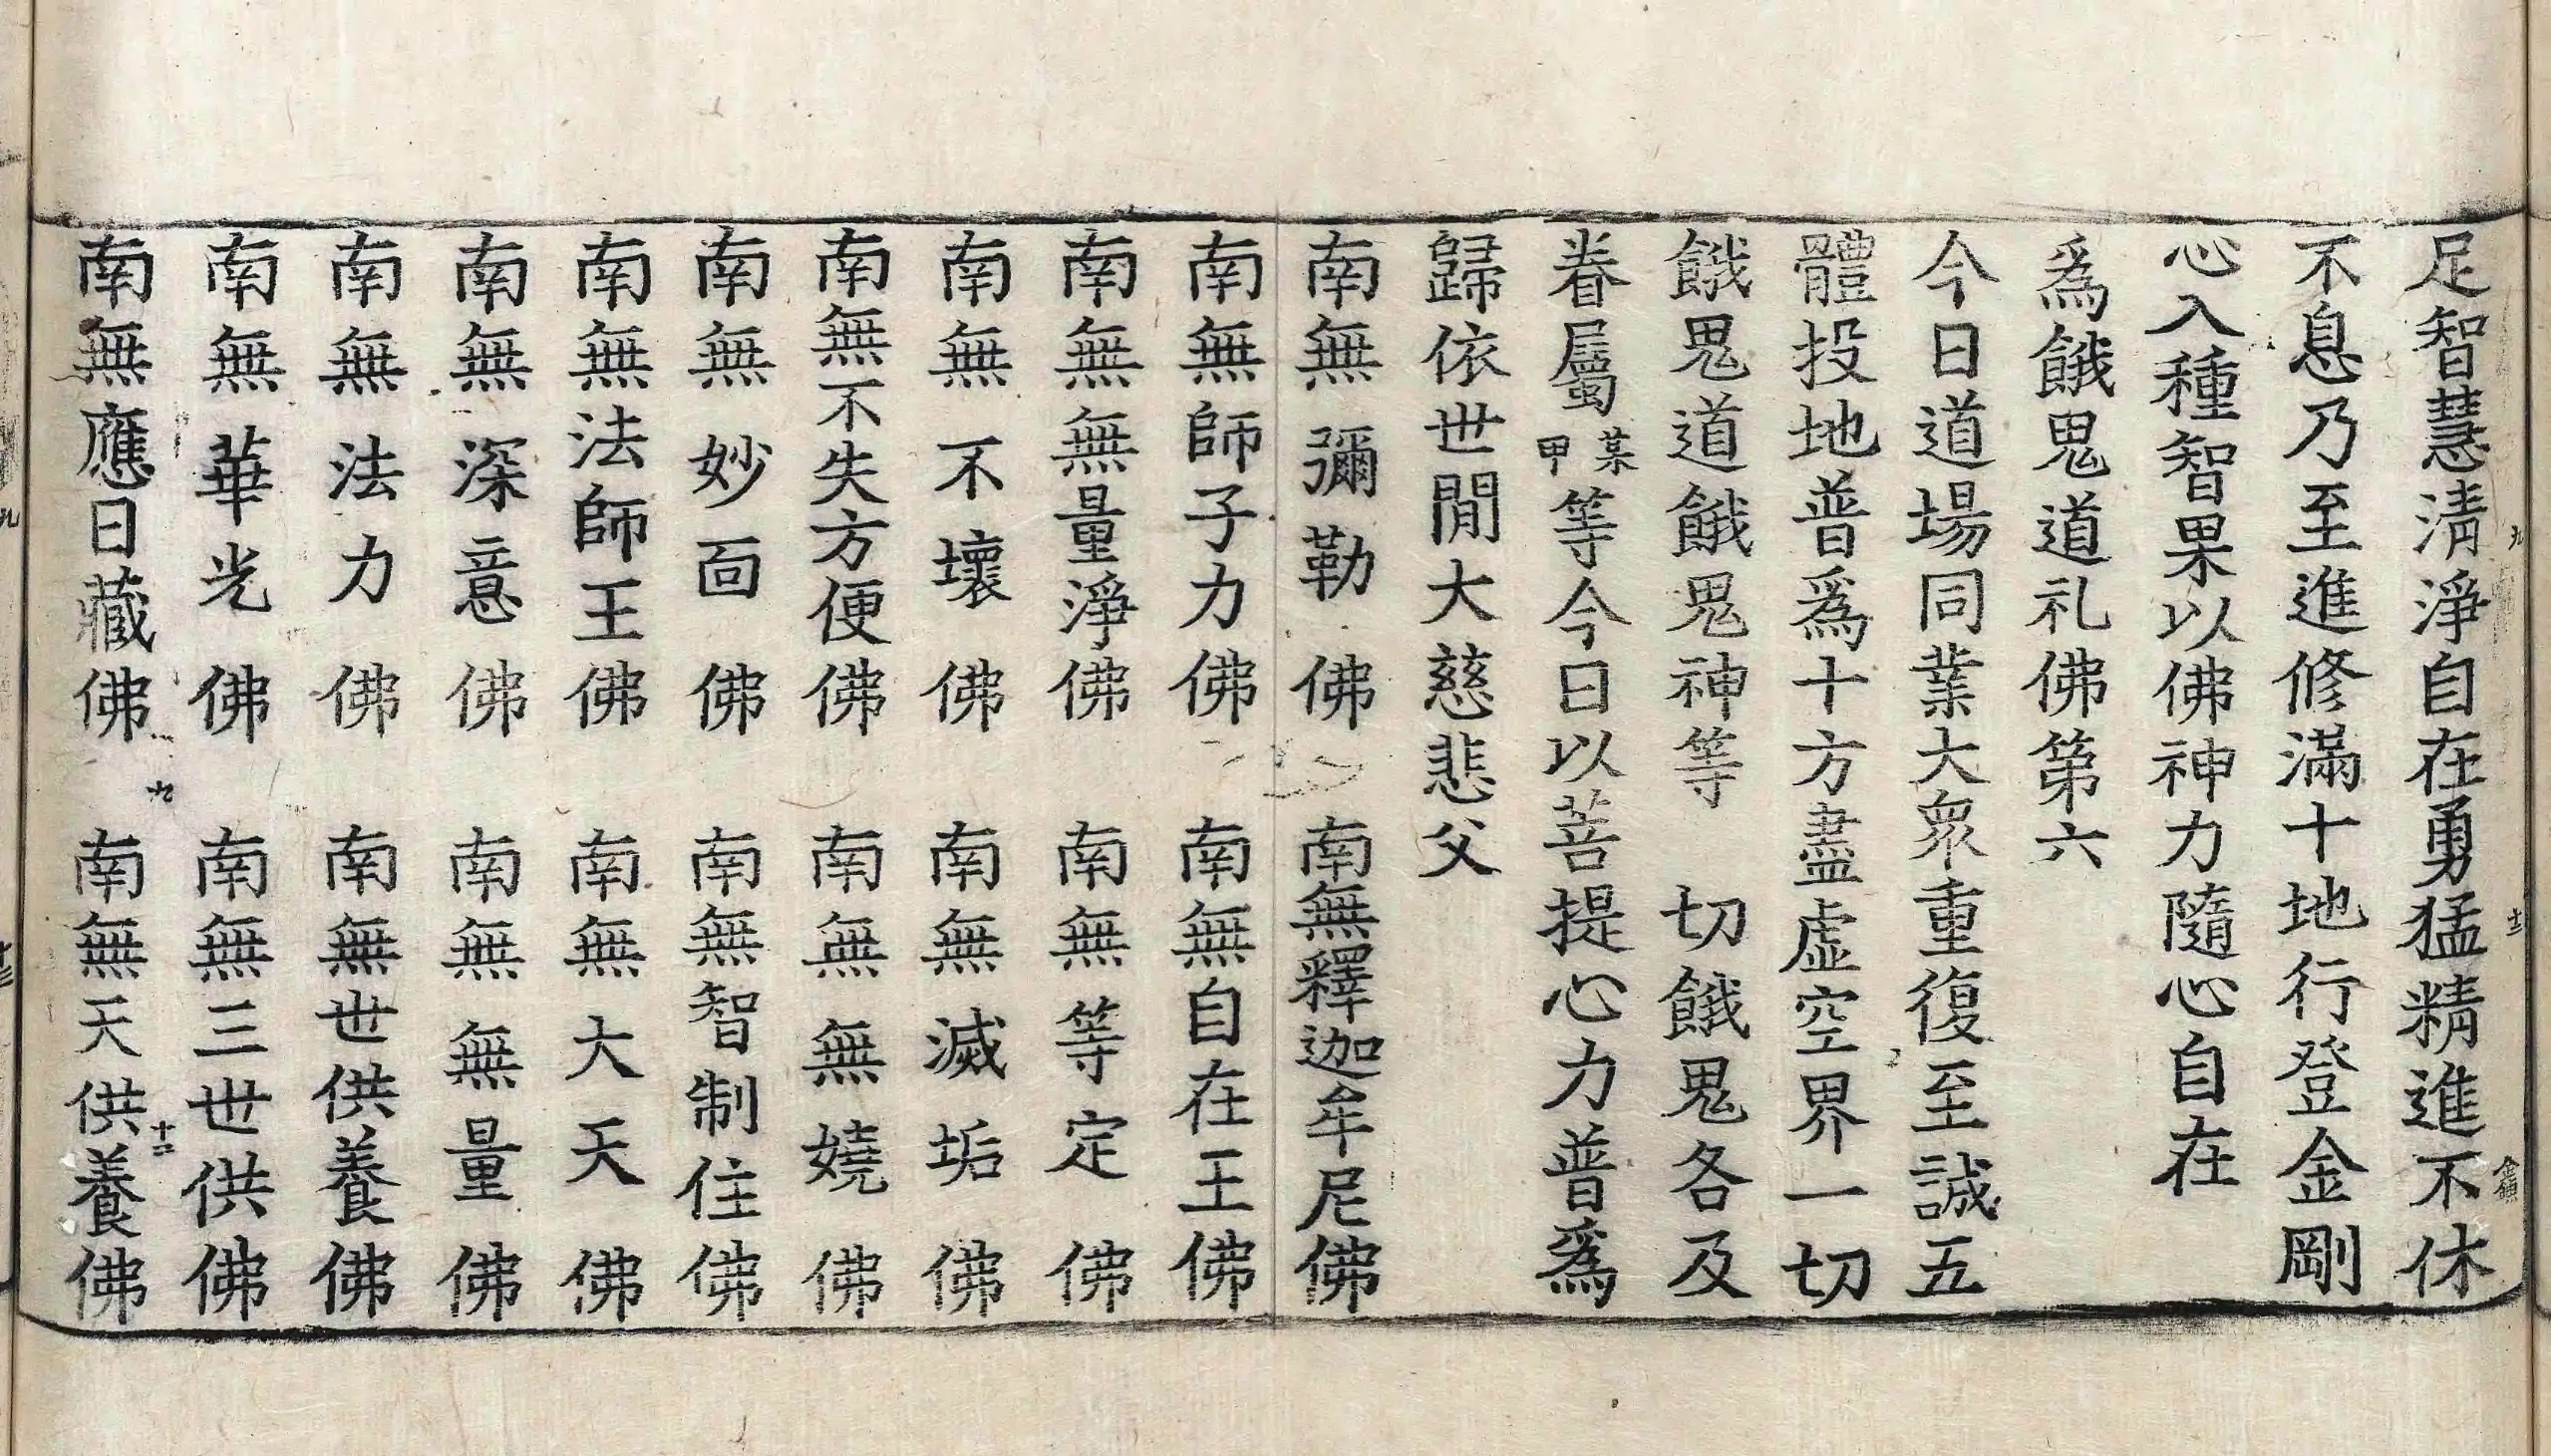 足智慧淸淨自在勇猛精進不休
不息乃至進修滿十地行登金剛
心入種智果以佛神力隨心自在
爲餓鬼道礼佛第六
今日道場同業大衆重復至誠五
體投地普爲十方盡虛空界一切
餓鬼道餓鬼神等 切餓鬼各及
眷屬某甲等今日以菩提心力普爲
歸依世閒大慈悲父
南無彌勒佛 南無釋迦牟尼佛
南無師子力佛 南無自在王佛
南無無量淨佛 南無等定佛
南無不壞佛 南無滅垢佛
南無不失方便佛 南無無嬈佛
南無妙面佛 南無智制住佛
南無法師王佛 南無大天佛
南無深意佛 南無無量佛
南無法力佛 南無世供養佛
南無華光佛 南無三世供佛
南無應日藏佛 南無天供養佛
九
十二